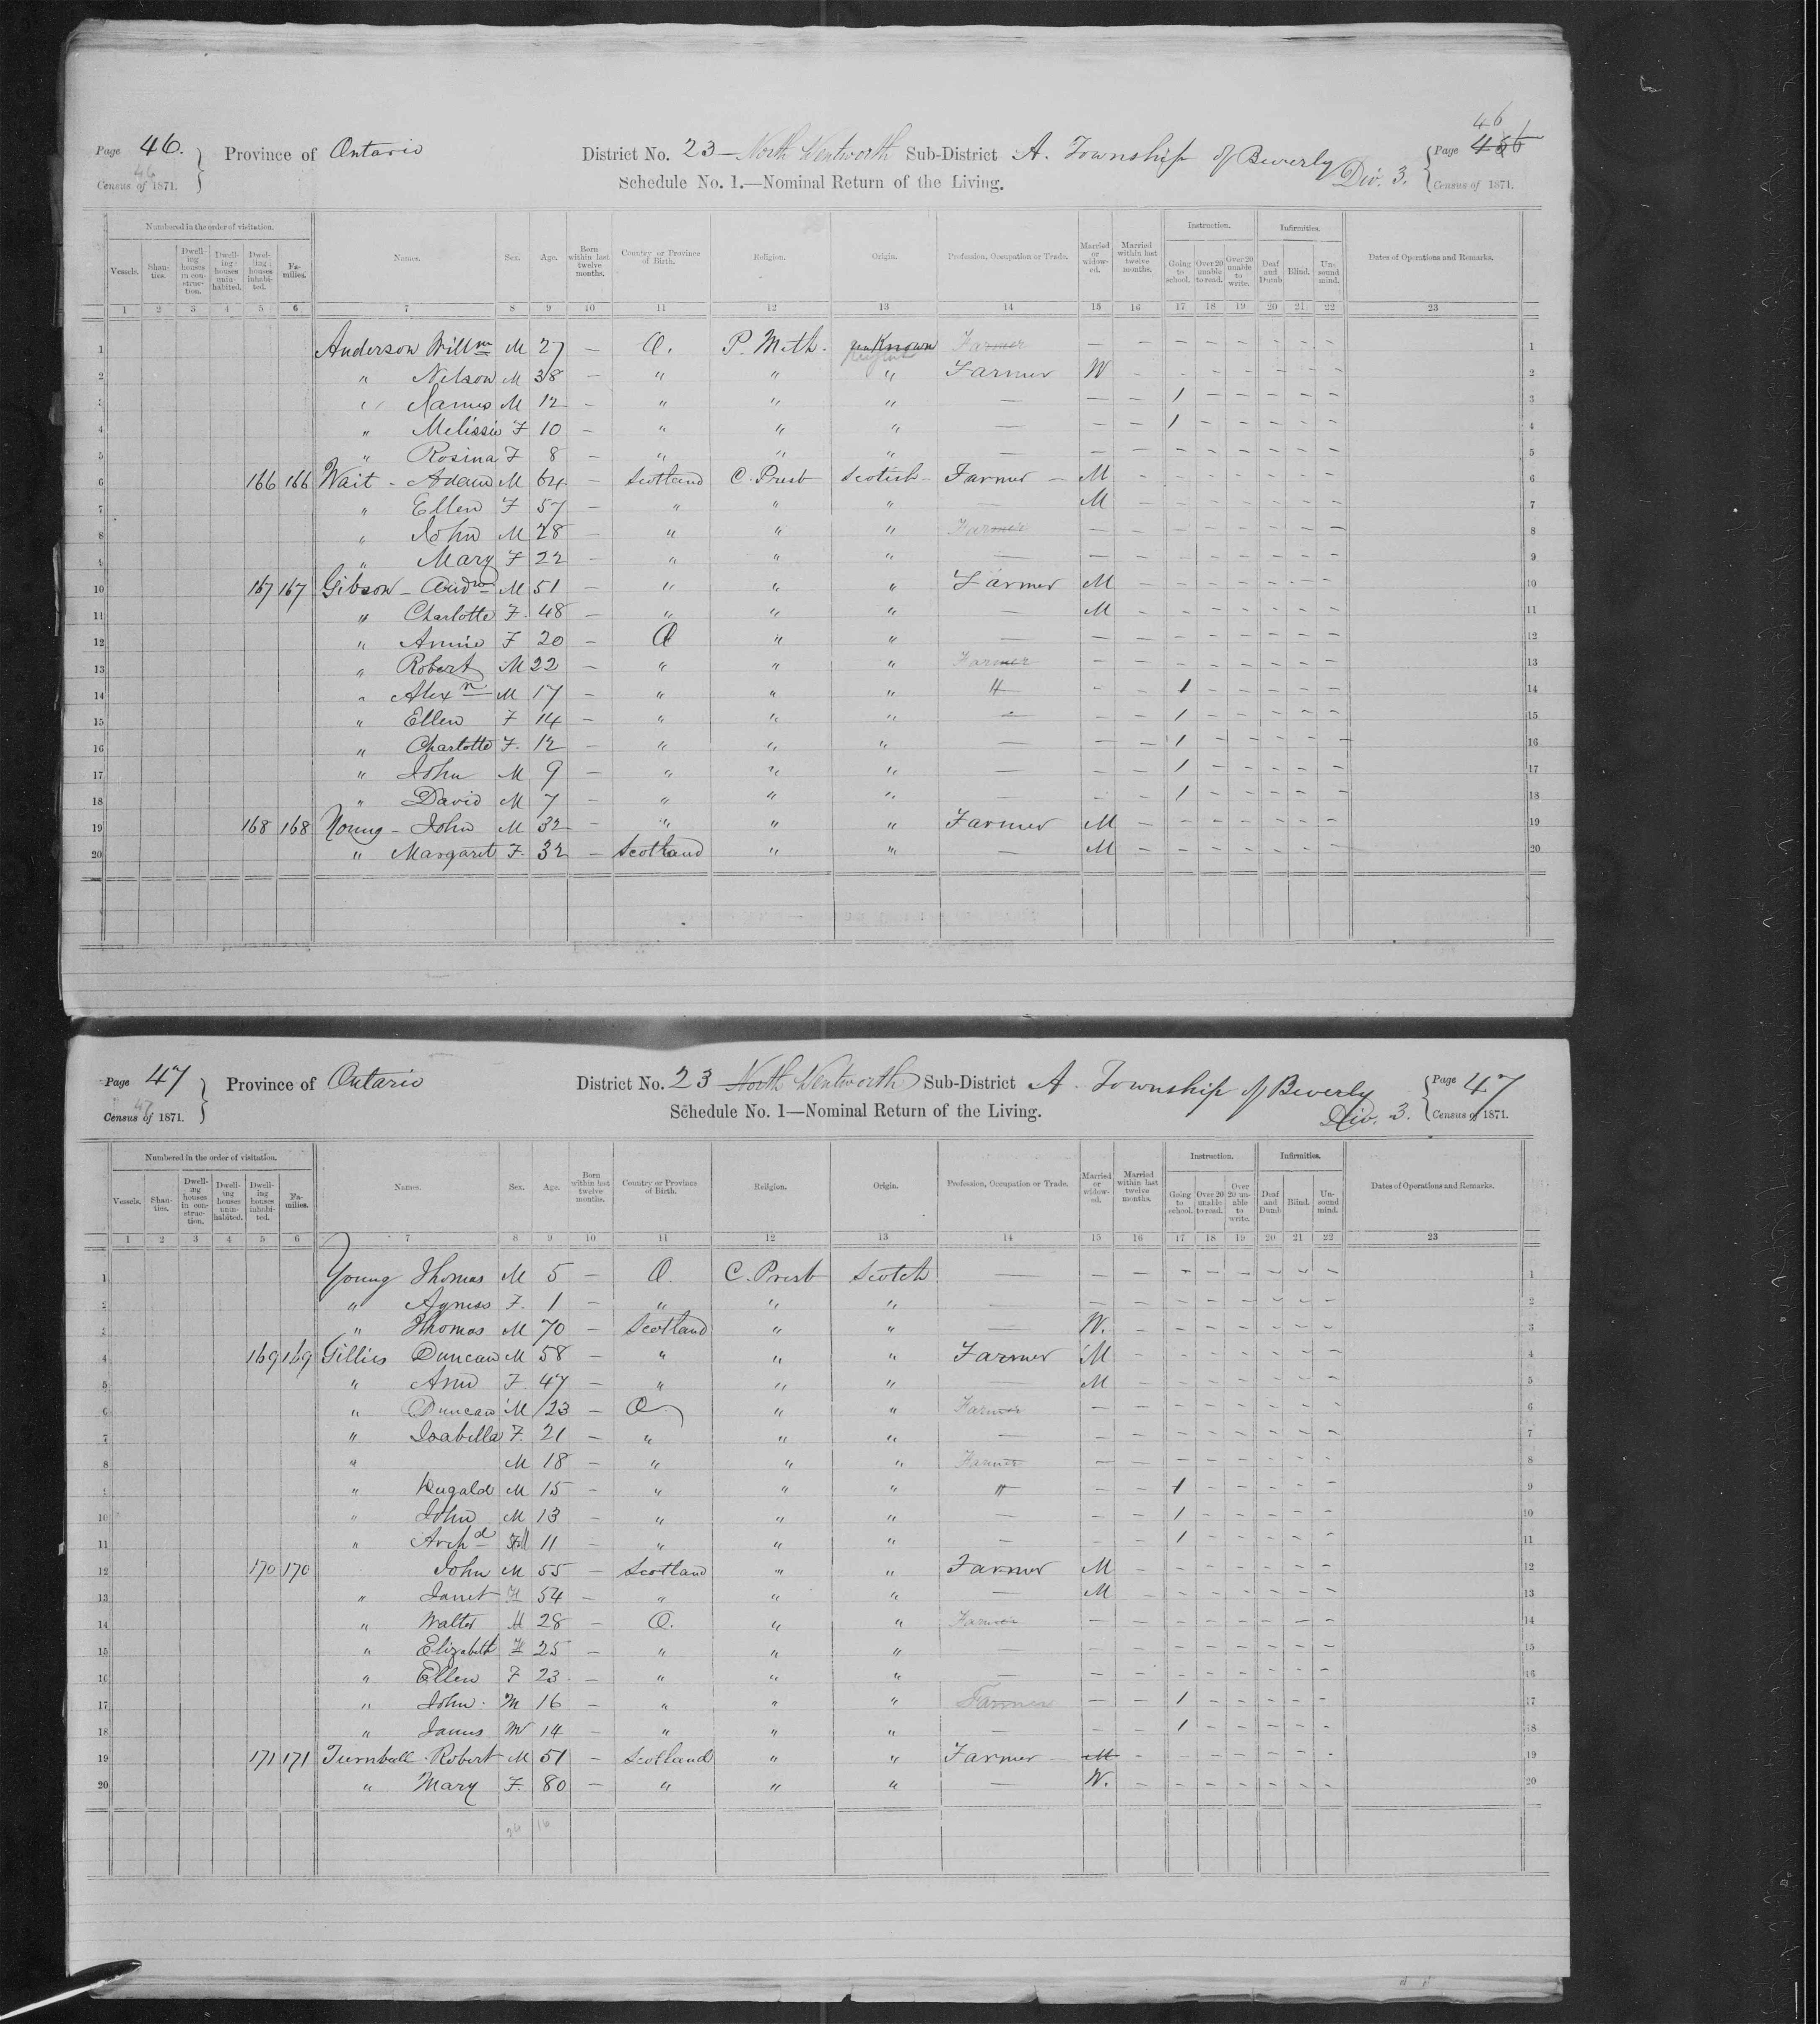 Page 46. Province of Ontario District No. 23 – North Wentworth Sub-District A. Township of Beverly Div. 3. Page 46
Census of 1871. Schedule No. 1.—Nominal Return of the Living. Census of 1871.
Numbered in the order of visitation. Instruction. Infirmities.
Vessels. Shanties. Dwelling houses in construction. Dwelling houses uninhabited. Dwelling houses inhabited. Families. Names. Sex. Age. Born within last twelve months. Country or Province of Birth. Religion. Origin. Profession, Occupation or Trade. Married or widowed. Married within last twelve months. Going to school. Over 20 unable to read. Over 20 unable to write. Deaf and Dumb Blind. Unsound mind. Dates of Operations and Remarks.
1 2 3 4 5 6 7 8 9 10 11 12 13 14 15 16 17 18 19 20 21 22 23
1 Anderson Willm M 27 – O. P. Meth. unKnown Farmer – – – – – – – – 1
2 " Nelson M 38 – " " " Farmer W – – – – – – – 2
3 " James M 12 – " " " — – – 1 – – – – – 3
4 " Melissie F 10 – " " " — – – 1 – – – – – 4
5 " Rosina F 8 – " " " — – – – – – – – – 5
6 166 166 Wait - Adam M 64 – Scotland C. Presb Scotish Farmer – M – – – – – – – 6
7 " Ellen F 57 – " " " — M – – – – – – – 7
8 " John M 28 – " " " Farmer – – – – – – – – 8
9 " Mary F 22 – " " " — – – – – – – – – 9
10 167 167 Gibson – Andw M 51 – " " " Farmer M – – – – – – – 10
11 " Charlotte F. 48 – " " " — M – – – – – – – 11
12 " Annie F 20 – O " " — – – – – – – – – 12
13 " Robert M 22 – " " " Farmer – – – – – – – – 13
14 " Alexr M 17 – " " " " – – 1 – – – – – 14
15 " Ellen F 14 – " " " — – – 1 – – – – – 15
16 " Charlotte F. 12 – " " " — – – 1 – – – – – 16
17 " John M 9 – " " " — – – 1 – – – – – 17
18 " David M 7 – " " " — – – 1 – – – – – 18
19 168 168 Young – John M 32 – " " " Farmer M – – – – – – – 19
20 " Margaret F. 32 – Scotland " " — M – – – – – – – 20
Page 47 Province of Ontario District No. 23 North Wentworth Sub-District A. Township of Beverly Div. 3. Page 47
Census of 1871. Schedule No. 1—Nominal Return of the Living. Census of 1871.
Numbered in the order of visitation. Instruction. Infirmities.
Vessels. Shanties. Dwelling houses in construction. Dwelling houses uninhabited. Dwelling houses inhabited. Families. Names. Sex. Age. Born within last twelve months. Country or Province of Birth. Religion. Origin. Profession, Occupation or Trade. Married or widowed. Married within last twelve months. Going to school. Over 20 unable to read. Over 20 unable to write. Deaf and Dumb Blind. Unsound mind. Dates of Operations and Remarks.
1 2 3 4 5 6 7 8 9 10 11 12 13 14 15 16 17 18 19 20 21 22 23
1 Young Thomas M 5 – O. C. Presb Scotch — – – – – – – – – 1
2 " Agness F. 1 – " " " — – – – – – – – – 2
3 " Thomas M 70 – Scotland " " — W. – – – – – – – 3
4 169 169 Gillies Duncan M 58 – " " " Farmer M – – – – – – – 4
5 " Ann F 47 – " " " — M – – – – – – – 5
6 " Duncan M 23 – O " " Farmer – – – – – – – – 6
7 " Isabella F. 21 – " " " — – – – – – – – – 7
8 " M 18 – " " " Farmer – – – – – – – – 8
9 " Dugald M 15 – " " " " – – 1 – – – – – 9
10 " John M 13 – " " " — – – 1 – – – – – 10
11 " Archd M 11 – " " " — – – 1 – – – – – 11
12 170 170 John M 55 – Scotland " " Farmer M – – – – – – – 12
13 " Janet F 54 – " " " — M – – – – – – – 13
14 " Walter M 28 – O. " " Farmer – – – – – – – – 14
15 " Elizabeth F 25 – " " " — – – – – – – – – 15
16 " Ellen F 23 – " " " — – – – – – – – – 16
17 " John. M 16 – " " " Farmer – – 1 – – – – – 17
18 " James M 14 – " " " — – – 1 – – – – – 18
19 171 171 Turnbull. Robert M 51 – Scotland " " Farmer – M – – – – – – – 19
20 " Mary F. 80 – " " " — W. – – – – – – – 20
24 16